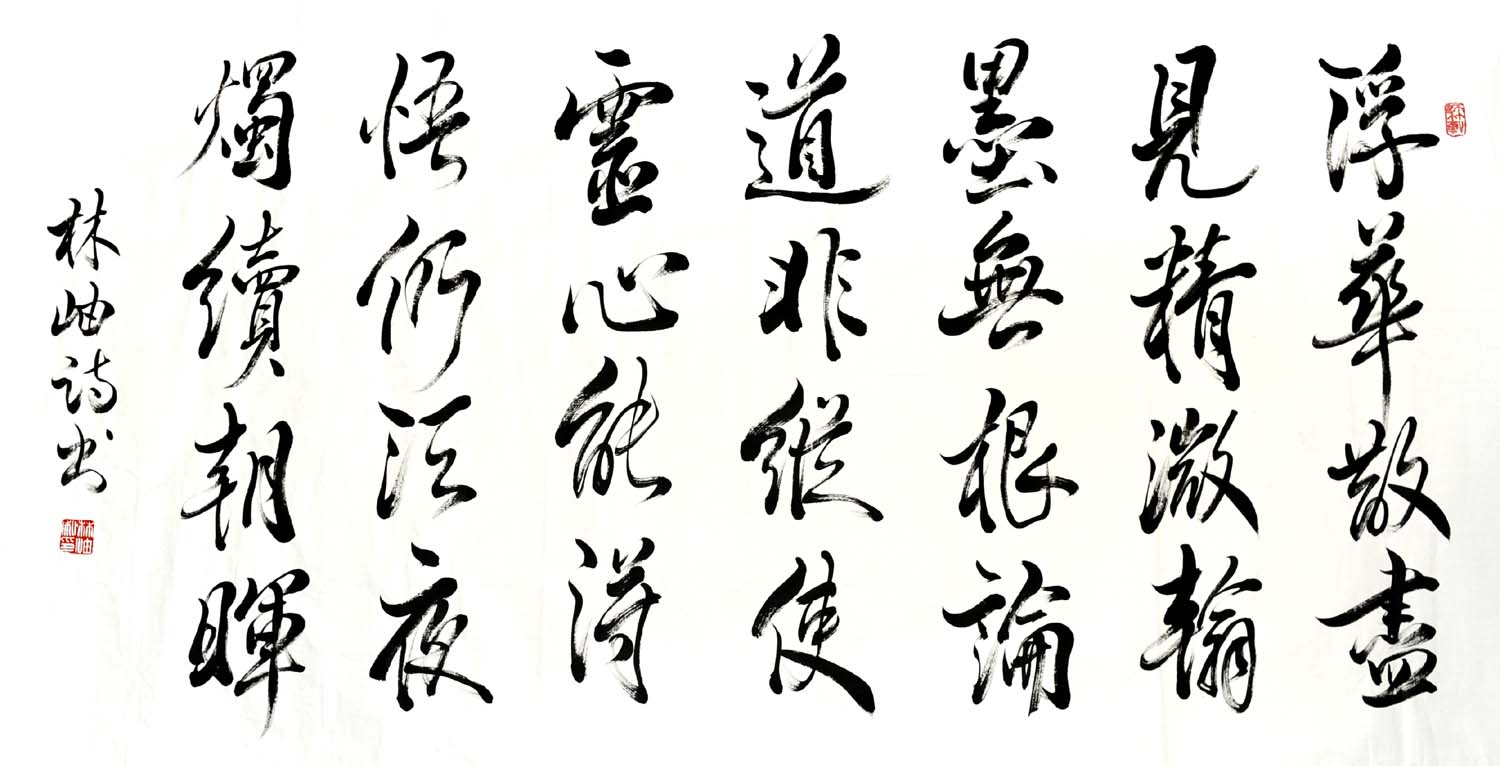 浮華散盡
見精微翰
墨無根論
道非縱使
靈心能得
悟仍須夜
燭續朝暉
林岫詩书
林岫私印